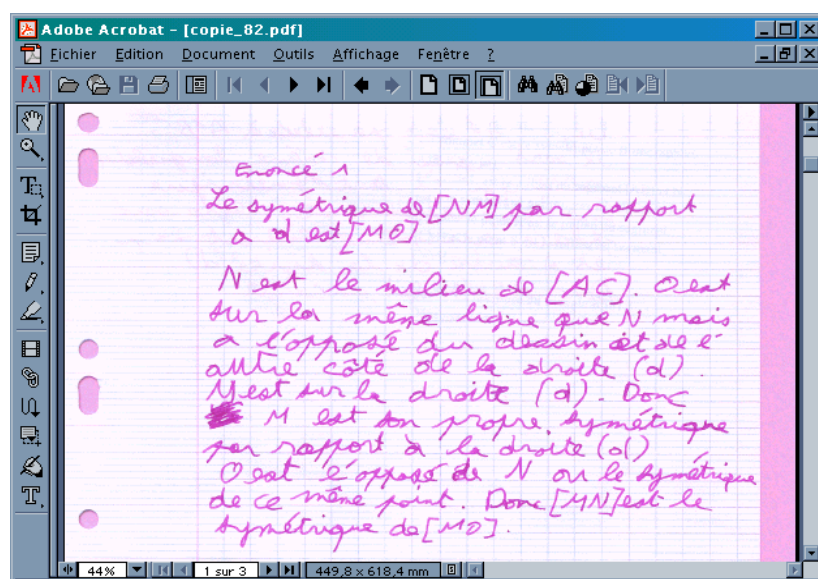 Adobe Acrobat - [copie_82.pdf]
Fichier Edition Document Outils Affichage Fenêtre ?
Enoncé 1
Le symétrique de [NM] par rapport
a d est [MO]
N est le milieu de [AC]. O est
sur la même ligne que N mais
a l'opposé du dessin et de l'
autre côté de la droite (d).
M est sur la droite (d). Donc
M est son propre symétrique
par rapport à la droite (d)
O est l'opposé de N ou le symétrique
de ce même point. Donc [MN] est le
symétrique de [MO].
44% 1 sur 3 449,8 x 618,4 mm